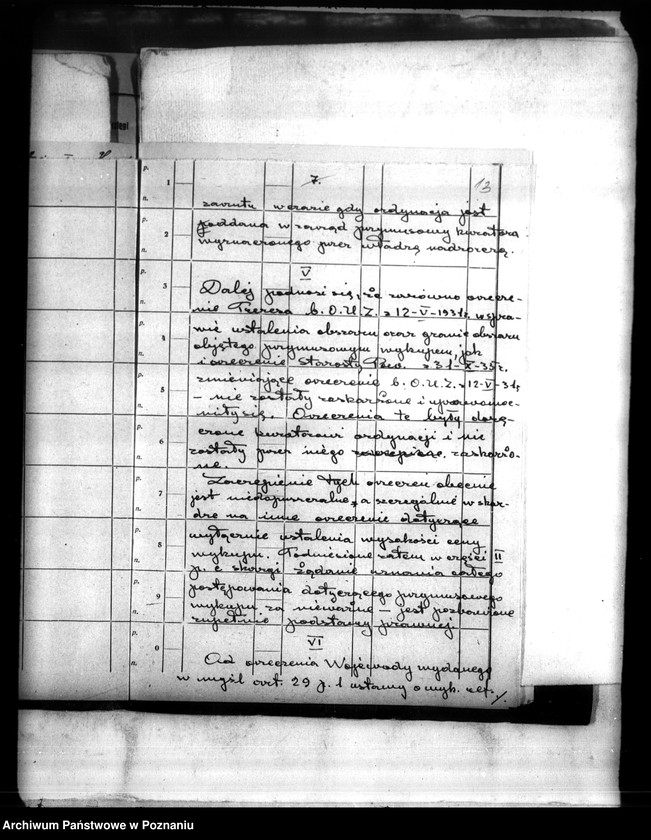 7.
13
zarzutu w czasie gdy ordynacja jest
poddana w zarząd przymusowy kuratora
wyznaczonego przez władzę nadrzędną.
V
Dalej podnosi się, że zarówno orzecze-
nie Prezesa b. O.U.Z. z 12-V-1931 r. w spra-
wie ustalenia obszaru oraz granic obszaru
objętego przymusowym wykupem, jak
i orzeczenie Starosty Pow. z 31-X-35 r.
zmieniające orzeczenie b. O.U.Z. z 12-V-31,
– nie zostały zaskarżone i uprawomoc-
niły się. Orzeczenia te były dorę-
czone kuratorowi ordynacji i nie
zostały przez niego zaskarżo-
ne.
Zaczepienie tych orzeczeń obecnie
jest niedopuszczalne, a szczególnie w skar-
dze na inne orzeczenie dotyczące
wyłącznie ustalenia wysokości ceny
wykupu. Podniesione zatem w części II
p. c skargi żądanie uznania całego
postępowania dotyczącego przymusowego
wykupu za nieważne – jest pozbawione
zupełnie podstawy prawnej.
VI
Od orzeczenia Wojewody wydanego
w myśl art. 29 p. 1 ustawy o wyk. ref.
p.
n.
1
2
3
4
5
6
7
8
9
0
Archiwum Państwowe w Poznaniu